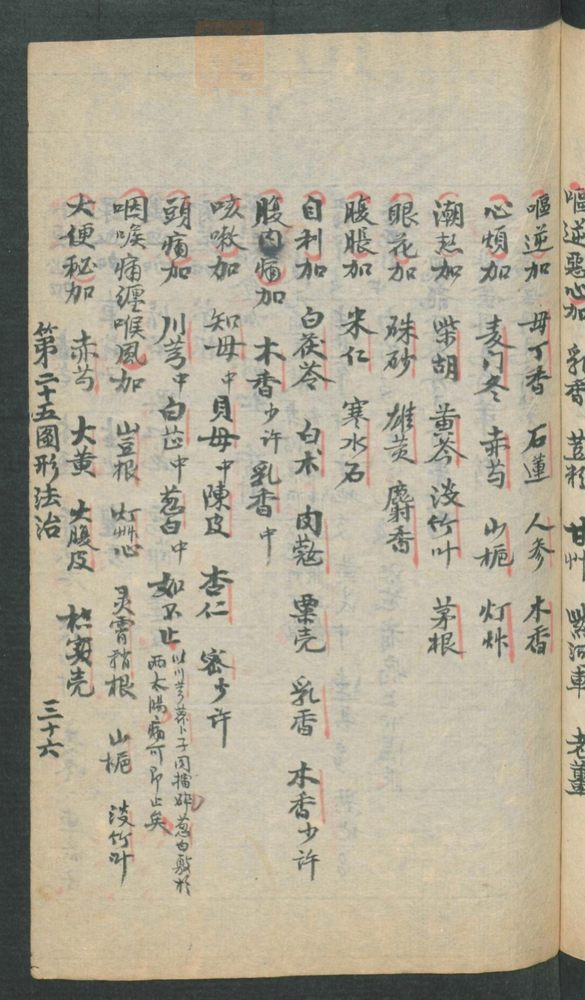 嘔逆惡心加 乳香 荳籾 甘艸 紫河車 老薑
嘔逆加 毋丁香 石蓮 人參 木香
心煩加 麦门冬 赤芍 山梔 灯艸
潮热加 柴胡 黄芩 淡竹叶 茅根
眼花加 硃砂 雄黄 麝香
腹脹加 米仁 寒水石
自利加 白茯苓 白术 肉蔻 粟壳 乳香 木香少许
腹内痛加 木香少许 乳香中
咳嗽加 知母中 貝母中 陳皮 杏仁 密少许
頭痛加 川芎中 白芷中 葱白中 如不止 以川芎萝卜子同擂碎葱白敷於
两太陽痛可即止矣
咽喉痛纏喉風加 山豆根 灯艸心 灵霄稍根 山梔 淡竹叶
大便秘加 赤芍 大黄 大腹皮 枳实壳
第二十五圖形法治 三十六